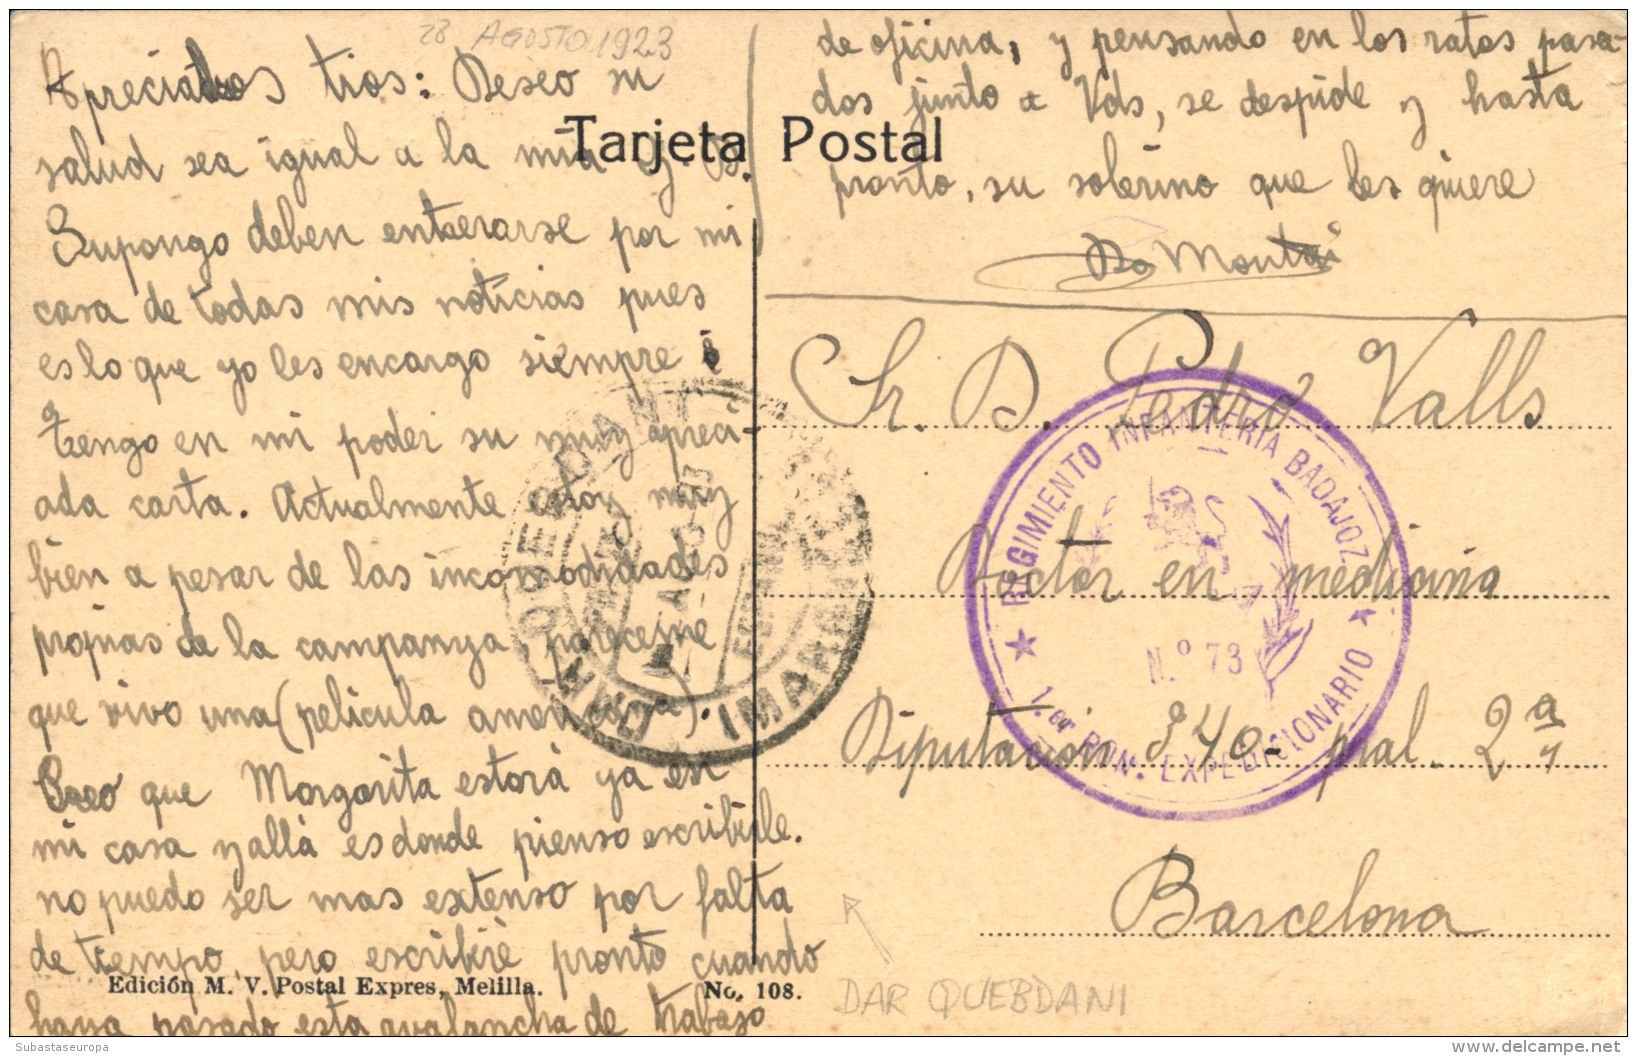 28 AGOSTO 1923
Apreciados tios: Deseo su
salud sea igual a la mia g. D.
Supongo deben enterarse por mi
casa de todas mis noticias pues
es lo que yo les encargo siempre
tengo en mi poder su muy apreci-
ada carta. Actualmente estoy muy
bien a pesar de las incomodidades
propias de la campanya, pareceme
que vivo una (pelicula americana).
Creo que Margarita estará ya en
mi casa y allá es donde pienso escribirle.
no puedo ser mas extenso por falta
de tiempo, pero escribiré pronto cuando
haya pasado esta avalancha de trabajo
de oficina, y pensando en los ratos pasa-
dos junto a Vds, se despide y hasta
pronto, su sobrino que les quiere
Tarjeta Postal
Sr. D. Pedro Valls
Doctor en medicina
Diputación 340- pral. 2ª
Barcelona
REGIMIENTO INFANTERIA BADAJOZ
N.º 73
1.er BON. EXPEDICIONARIO
DAR QUEBDANI
Edición M. V. Postal Expres, Melilla.
No. 108.
Subastaseuropa
www.delcampe.net